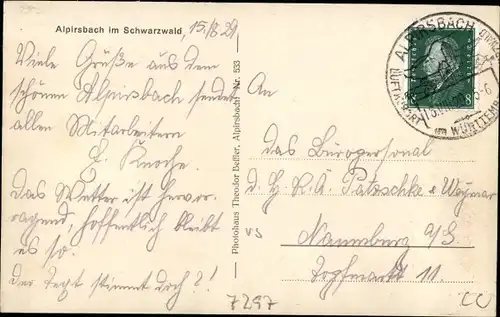 Alpirsbach im Schwarzwald, 15/8 29
Viele Grüße aus dem
schönen Alpirsbach sendet
allen Mitarbeitern
E. Knoche.
Das Wetter ist hervor-
ragend, hoffentlich bleibt
es so.
Der Text stimmt doch?!
Photohaus Theodor Beißer, Alpirsbach. Nr. 533
An
das Büropersonal
d. H. R. A. Patzschke &
Naumburg a/S.
Topfmarkt 11.
VS
7297
CC
ALPIRSBACH
LUFTKURORT
WÜRTTEM
8